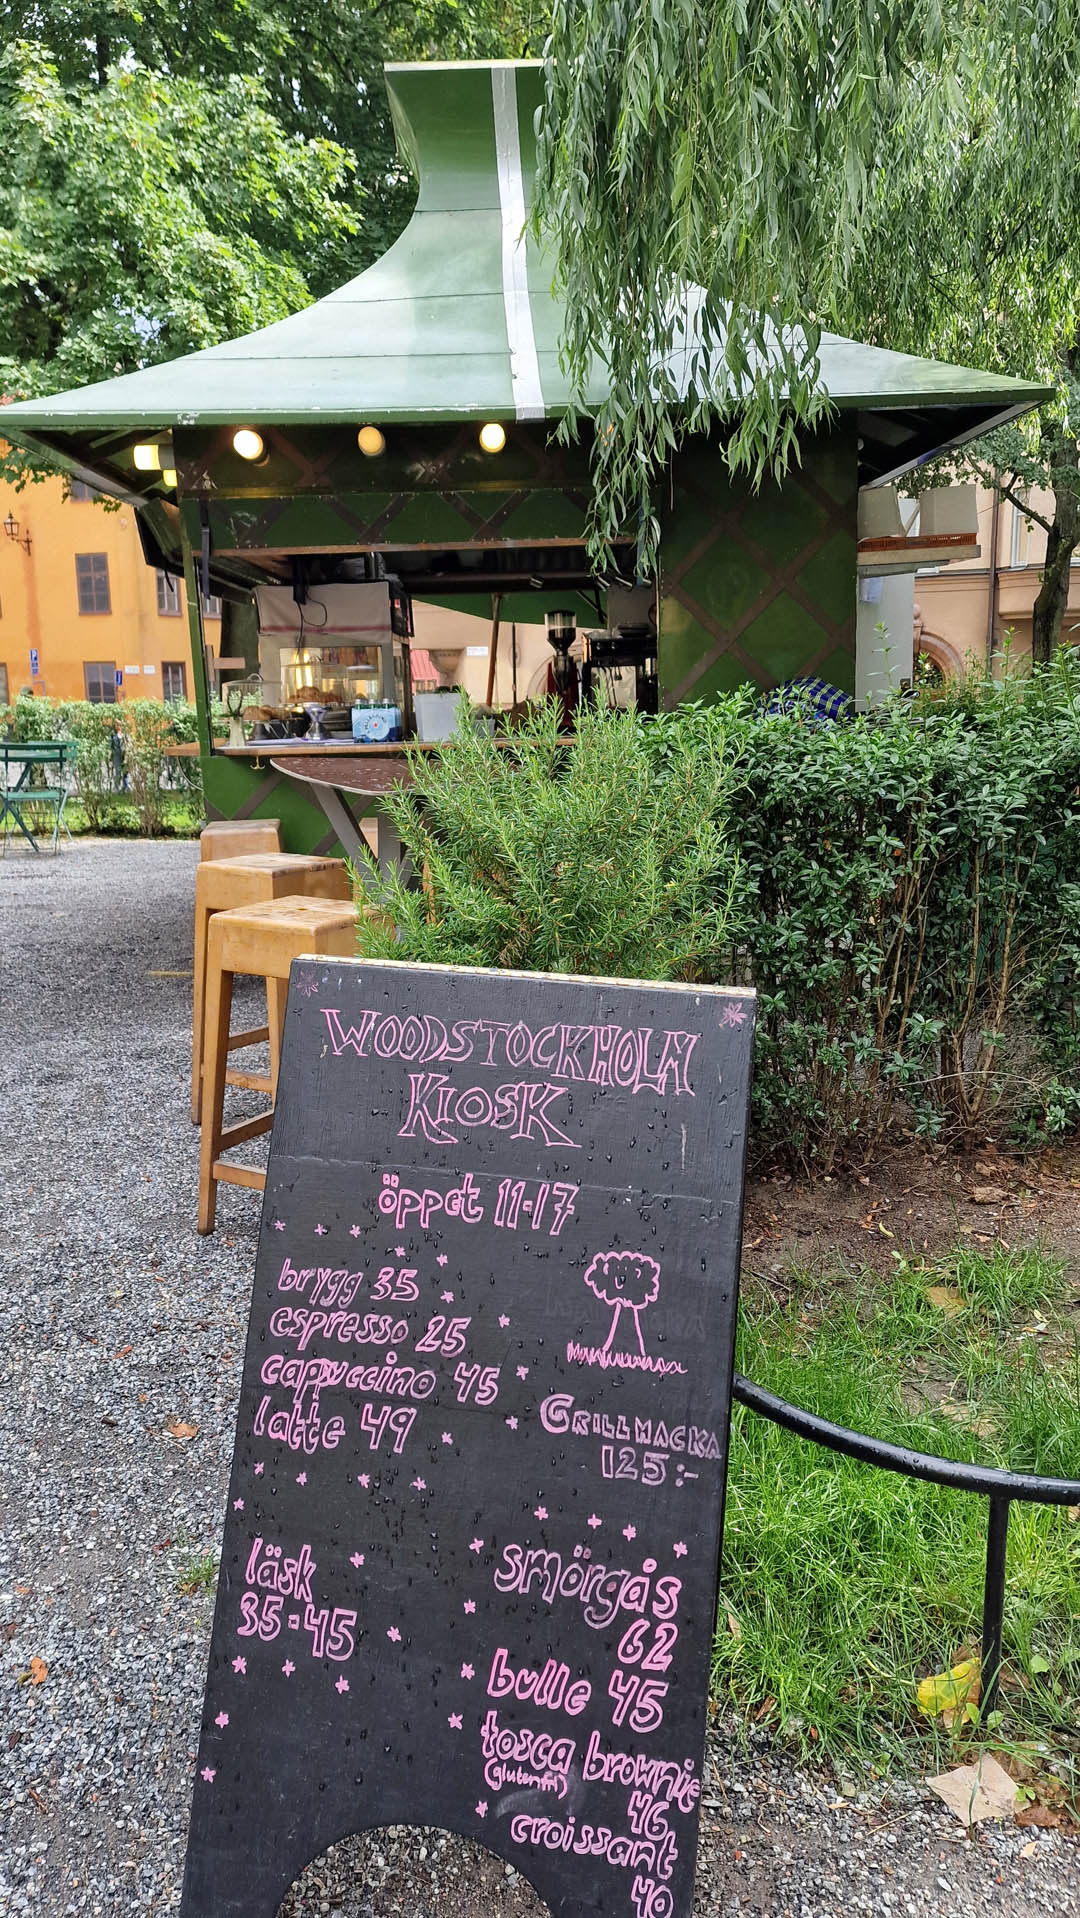 WOODSTOCKHOLM
KIOSK
öppet 11-17
brygg 35
espresso 25
cappuccino 45
latte 49
GRILLMACKA
125:-
läsk
35-45
smörgås
62
bulle 45
tosca brownie
(glutenfri)
46
croissant
40